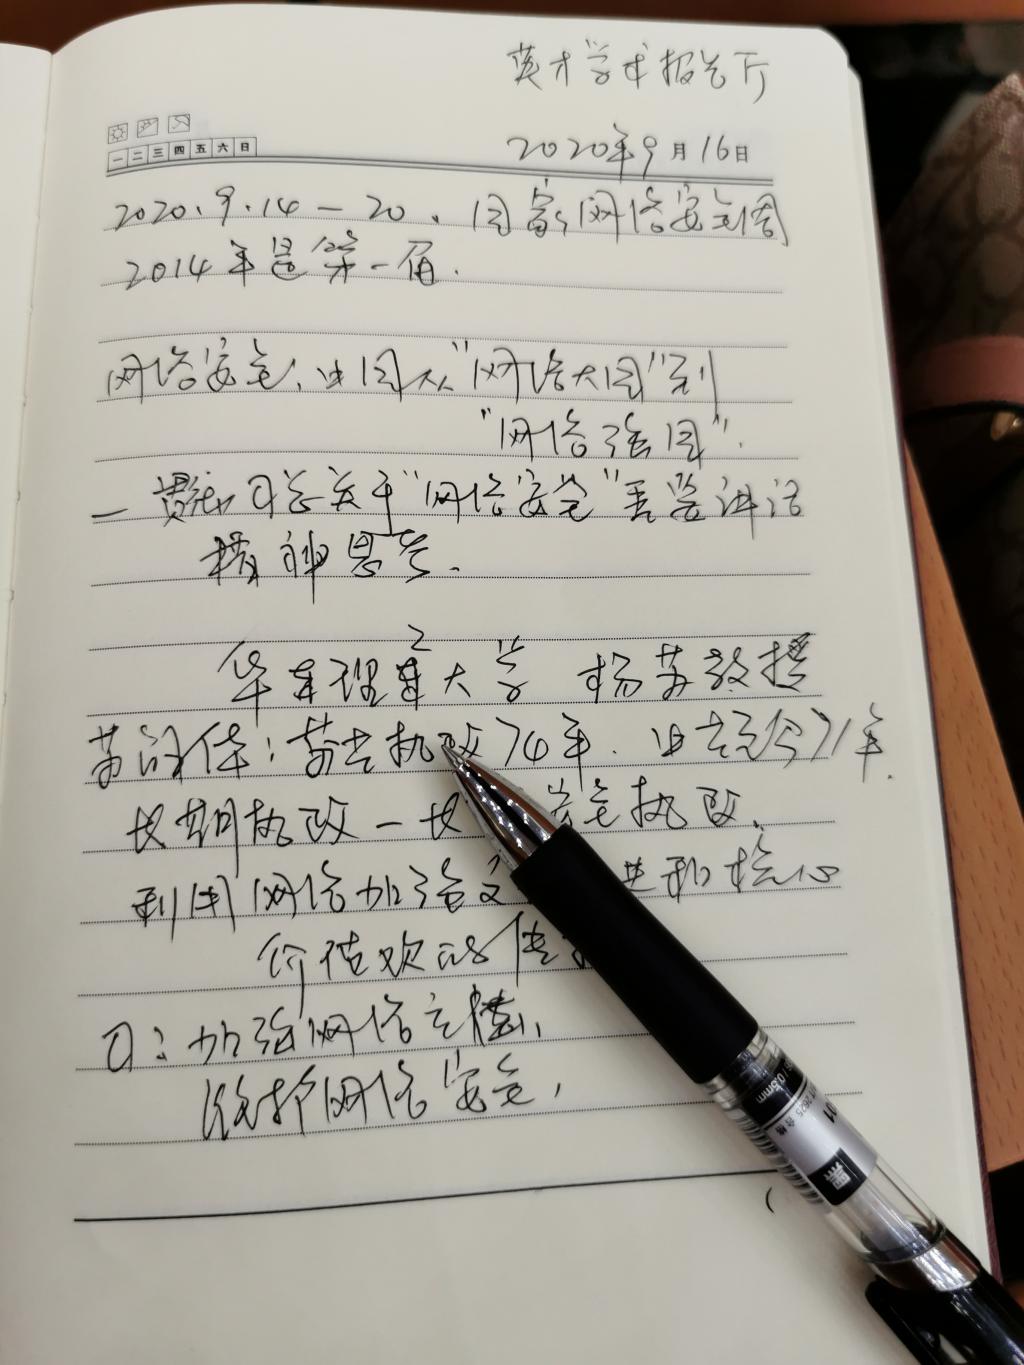 英才学术报告厅
一 二 三 四 五 六 日
2020年9月16日
2020.9.14-20.国家网络安全周
2014年是第一届.
网络安全:中国从"网络大国"到
"网络强国".
— 贯彻习总关于"网络安全"重要讲话
精神思考.
华东理工大学 杨苏教授
苏联: 苏共执政74年. 中共至今71年.
长期执政—长 安全执政.
利用网络加强 核心
价值观的传
习: 加强网络主权,
维护网络安全,
0.5mm
合格